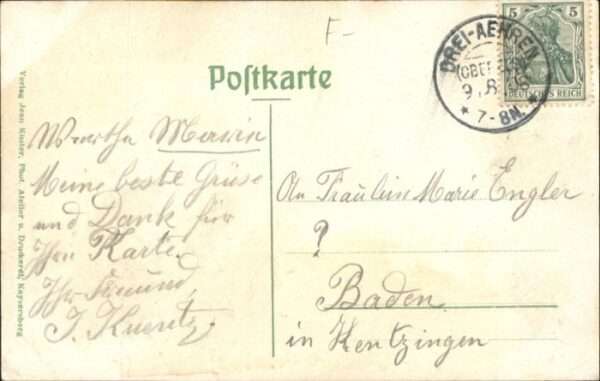 F-
5 5
DEUTSCHES REICH
DREI-AEHREN
9. 8.
* 7-8N. *
Postkarte
Werthe Marie
Meine beste Grüse
und Dank für
Ihre Karte.
Ihr Freund,
J. Kuentz.
An Fräulein Marie Engler
?
Baden
in Kentzingen
Verlag Jean Kuster, Phot. Atelier u. Druckerei, Kaysersberg